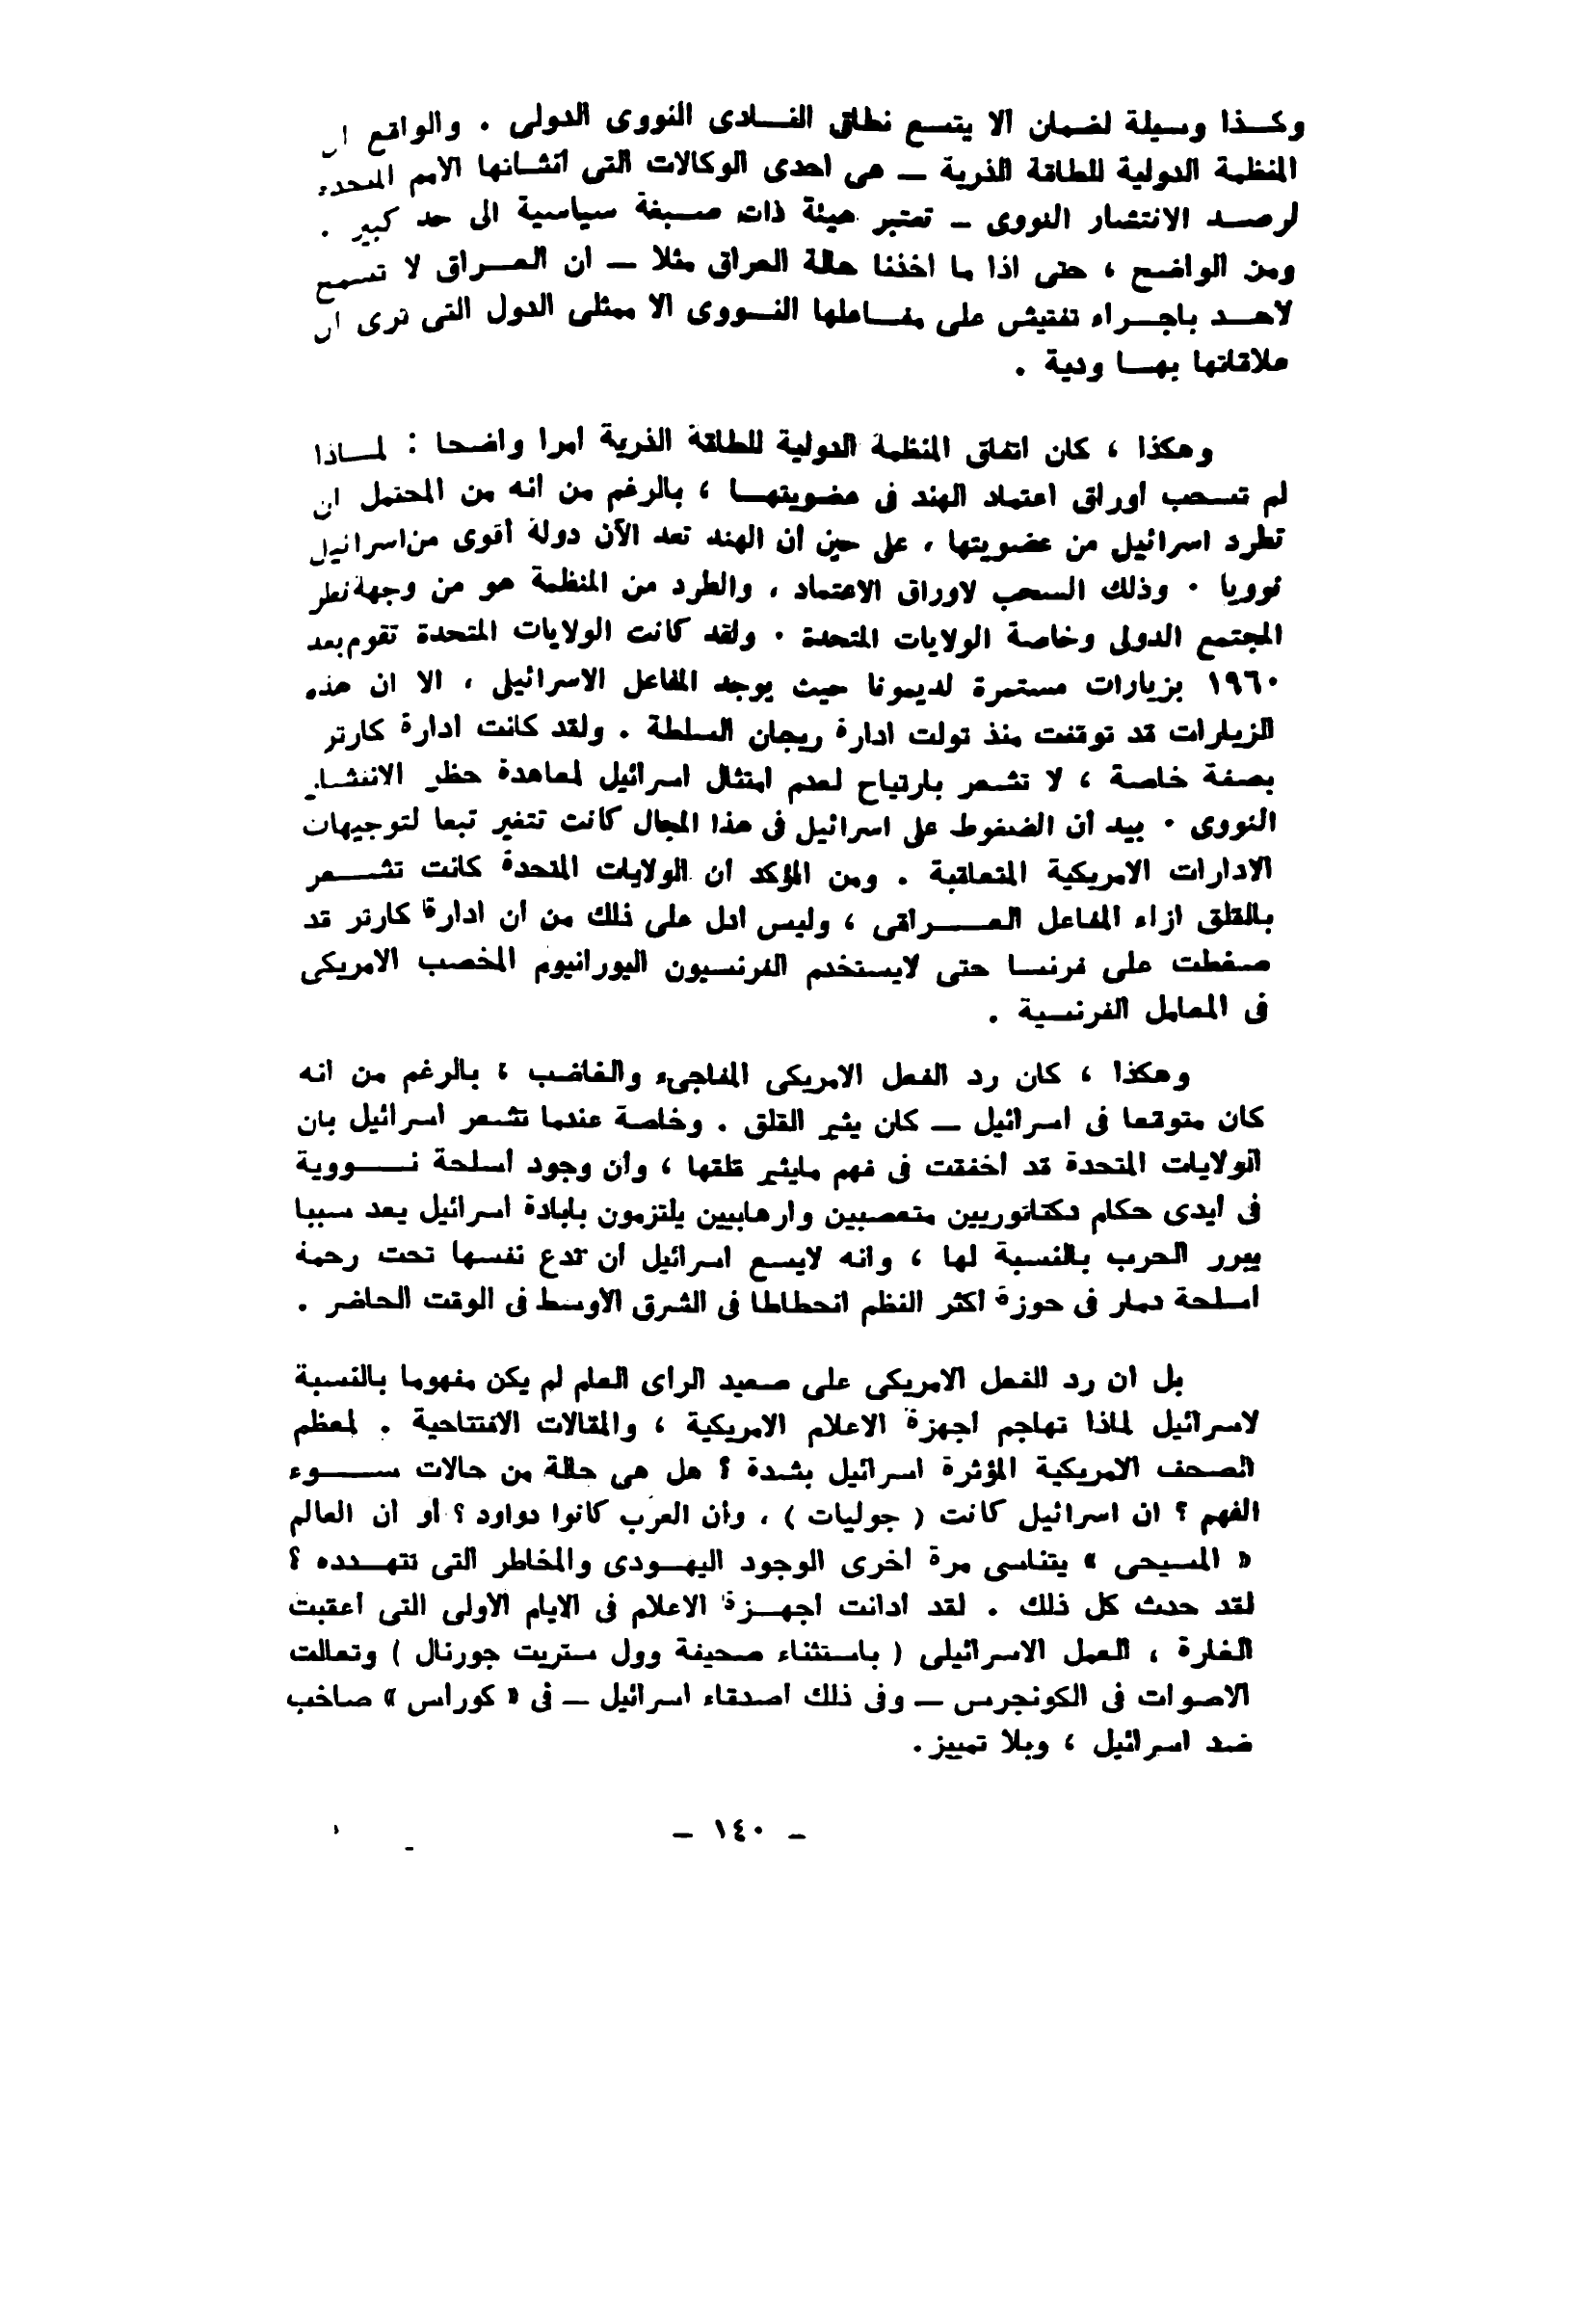 وكــذا وسيلة لضمان ألا يتسع نطاق النـــادى النووى الدولى . والواقع ان
المنظمة الدولية للطاقة الذرية ـ هى احدى الوكالات التى أنشـأتها الامم المتحدة
لرصـد الانتشار النووى ـ تعتبر هيئة ذات صـبغة سياسية الى حد كبير .
ومن الواضح ، حتى اذا ما اخذنا حالة العراق مثلا ـ ان العــراق لا تسمح
لاحــد باجــراء تفتيش على مفــاعلها النــووى الا ممثلى الدول التى ترى ان
علاقاتها بهــا ودية .
وهكذا ، كان اتفاق المنظمة الدولية للطاقة الذرية امرا واضحا : لمــاذا
لم تسحب أوراق اعتماد الهند فى عضويتهــا ، بالرغم من أنه من المحتمل ان
تطرد اسرائيل من عضويتها ، على حين ان الهند تعد الآن دولة أقوى من اسرائيل
نوويا . وذلك السحب لاوراق الاعتماد ، والطرد من المنظمة هو من وجهة نظر
المجتمع الدولى وخاصة الولايات المتحدة . ولقد كانت الولايات المتحدة تقوم بعد
١٩٦٠ بزيارات مستمرة لديمونا حيث يوجد المفاعل الاسرائيلى ، الا ان هذه
الزيارات قد توقفت منذ تولت ادارة ريجان السلطة . ولقد كانت ادارة كارتر
بصفة خاصة ، لا تشعر بارتياح لعدم امتثال اسرائيل لمعاهدة حظر الانتشار
النووى . بيد أن الضغوط على اسرائيل فى هذا المجال كانت تتغير تبعا لتوجيهات
الادارات الامريكية المتعاقبة . ومن المؤكد أن الولايات المتحدة كانت تشــعر
بالقلق ازاء المفاعل العـــراقى ، وليس ادل على ذلك من أن ادارة كارتر قد
ضغطت على فرنسا حتى لايستخدم الفرنسيون اليورانيوم المخصب الامريكى
فى المعامل الفرنسية .
وهكذا ، كان رد الفعل الامريكى المفاجىء والغاضب ، بالرغم من انه
كان متوقعا فى اسرائيل ـ كان يثير القلق . وخاصة عندما تشعر اسرائيل بان
الولايات المتحدة قد اخفقت فى فهم مايثير قلقها ، وأن وجود أسلحة نــووية
فى أيدى حكام دكتاتوريين متعصبين وارهابيين يلتزمون بابادة اسرائيل يعد سببا
يبرر الحرب بالنسبة لها ، وانه لايسع اسرائيل أن تدع نفسها تحت رحمة
اسلحة دمار فى حوزة أكثر النظم انحطاطا فى الشرق الأوسط فى الوقت الحاضر .
بل ان رد الفعل الامريكى على صعيد الراى العام لم يكن مفهوما بالنسبة
لاسرائيل لماذا تهاجم أجهزة الاعلام الامريكية ، والمقالات الافتتاحية . لمعظم
الصحف الامريكية المؤثرة اسرائيل بشدة ؟ هل هى حالة من حالات ســوء
الفهم ؟ ان اسرائيل كانت ( جوليات ) ، وأن العرب كانوا دواود ؟ أو أن العالم
« المسيحى » يتناسى مرة اخرى الوجود اليهـودى والمخاطر التى تتهـدده ؟
لقد حدث كل ذلك . لقد ادانت اجهـزة الاعلام فى الايام الأولى التى أعقبت
الغارة ، العمل الاسرائيلى ( باستثناء صحيفة وول ستريت جورنال ) وتعالت
الاصوات فى الكونجرس ـ وفى ذلك اصدقاء اسرائيل ـ فى « كوراس » صاخب
ضد اسرائيل ، وبلا تمييز .
ـ ١٤٠ ـ